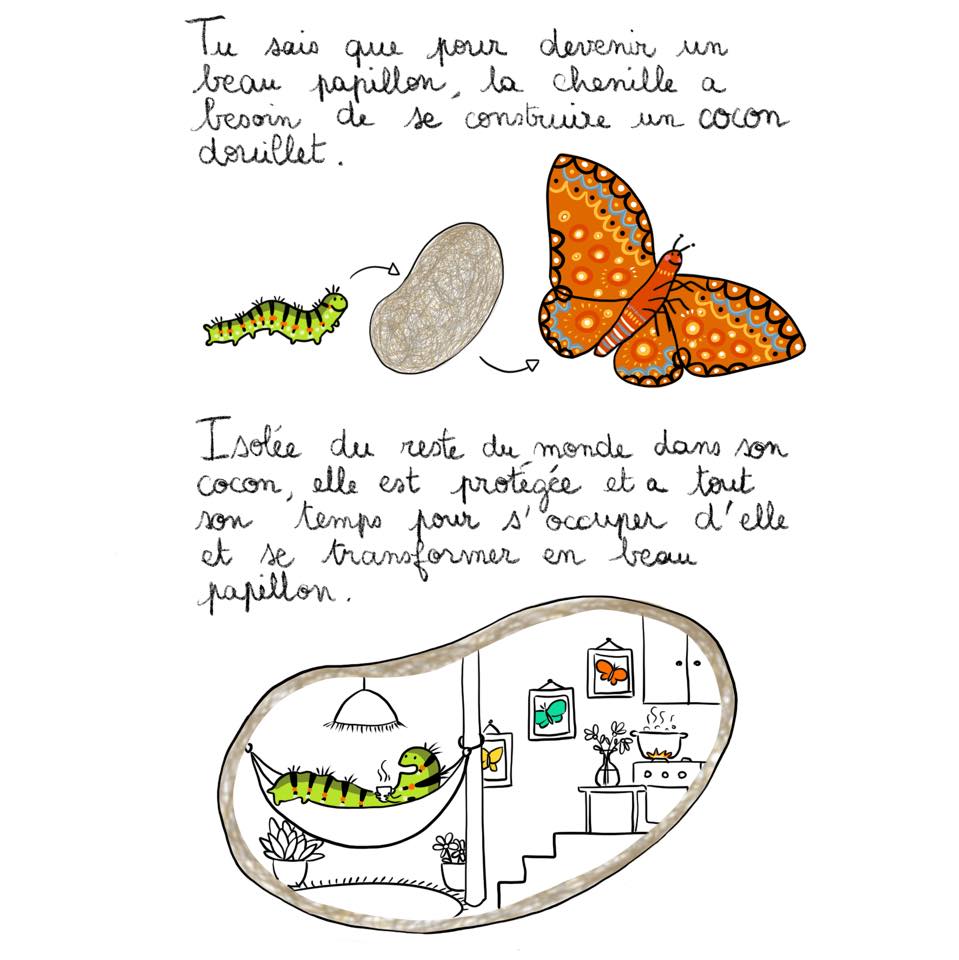 Tu sais que pour devenir un
beau papillon, la chenille a
besoin de se construire un cocon
douillet.
Isolée du reste du monde dans son
cocon, elle est protégée et a tout
son temps pour s'occuper d'elle
et se transformer en beau
papillon.